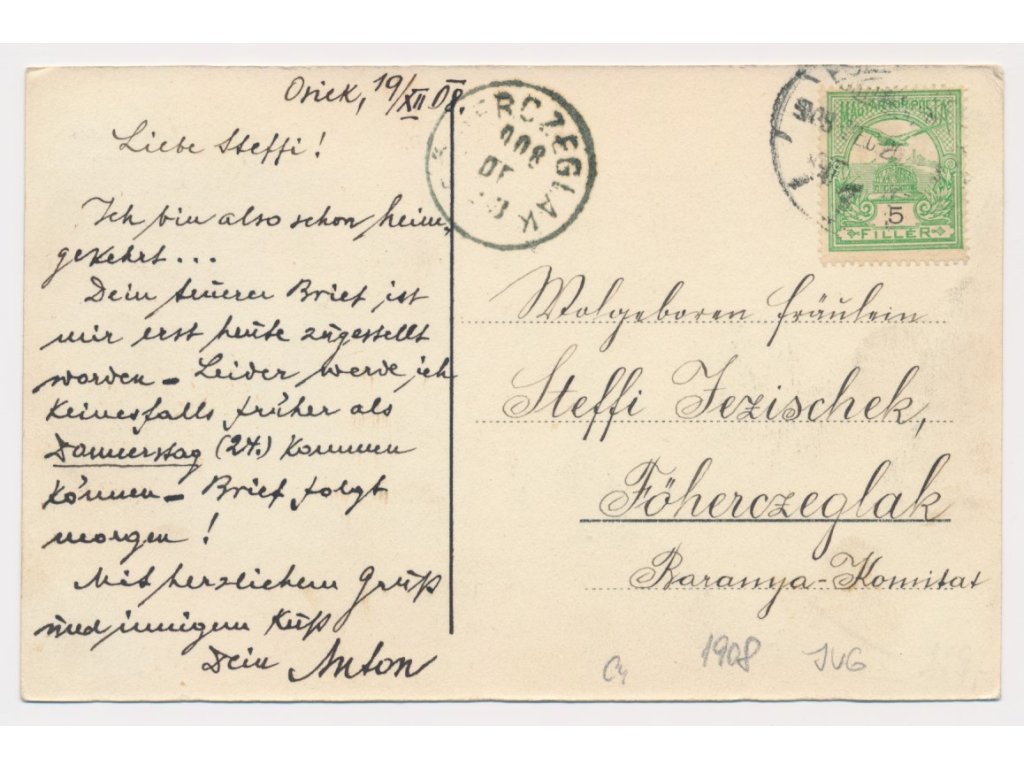 Osiek, 19/XII 08.
Liebe Steffi!
Ich bin also schon heim-
gekehrt...
Dein teuerer Brief ist
mir erst heute zugestellt
worden – Leider werde ich
keinesfalls früher als
Donnerstag (24.) kommen
können – Brief folgt
morgen!
Mit herzlichem Gruß
und innigem Kuß
Dein Anton
HERCZEGLAK
908
MAGYAR KIR. POSTA
5
FILLÉR
Wolgeboren Fräulein
Steffi Jezischek,
Föherczeglak
Baranya-Komitat
1908 JUG